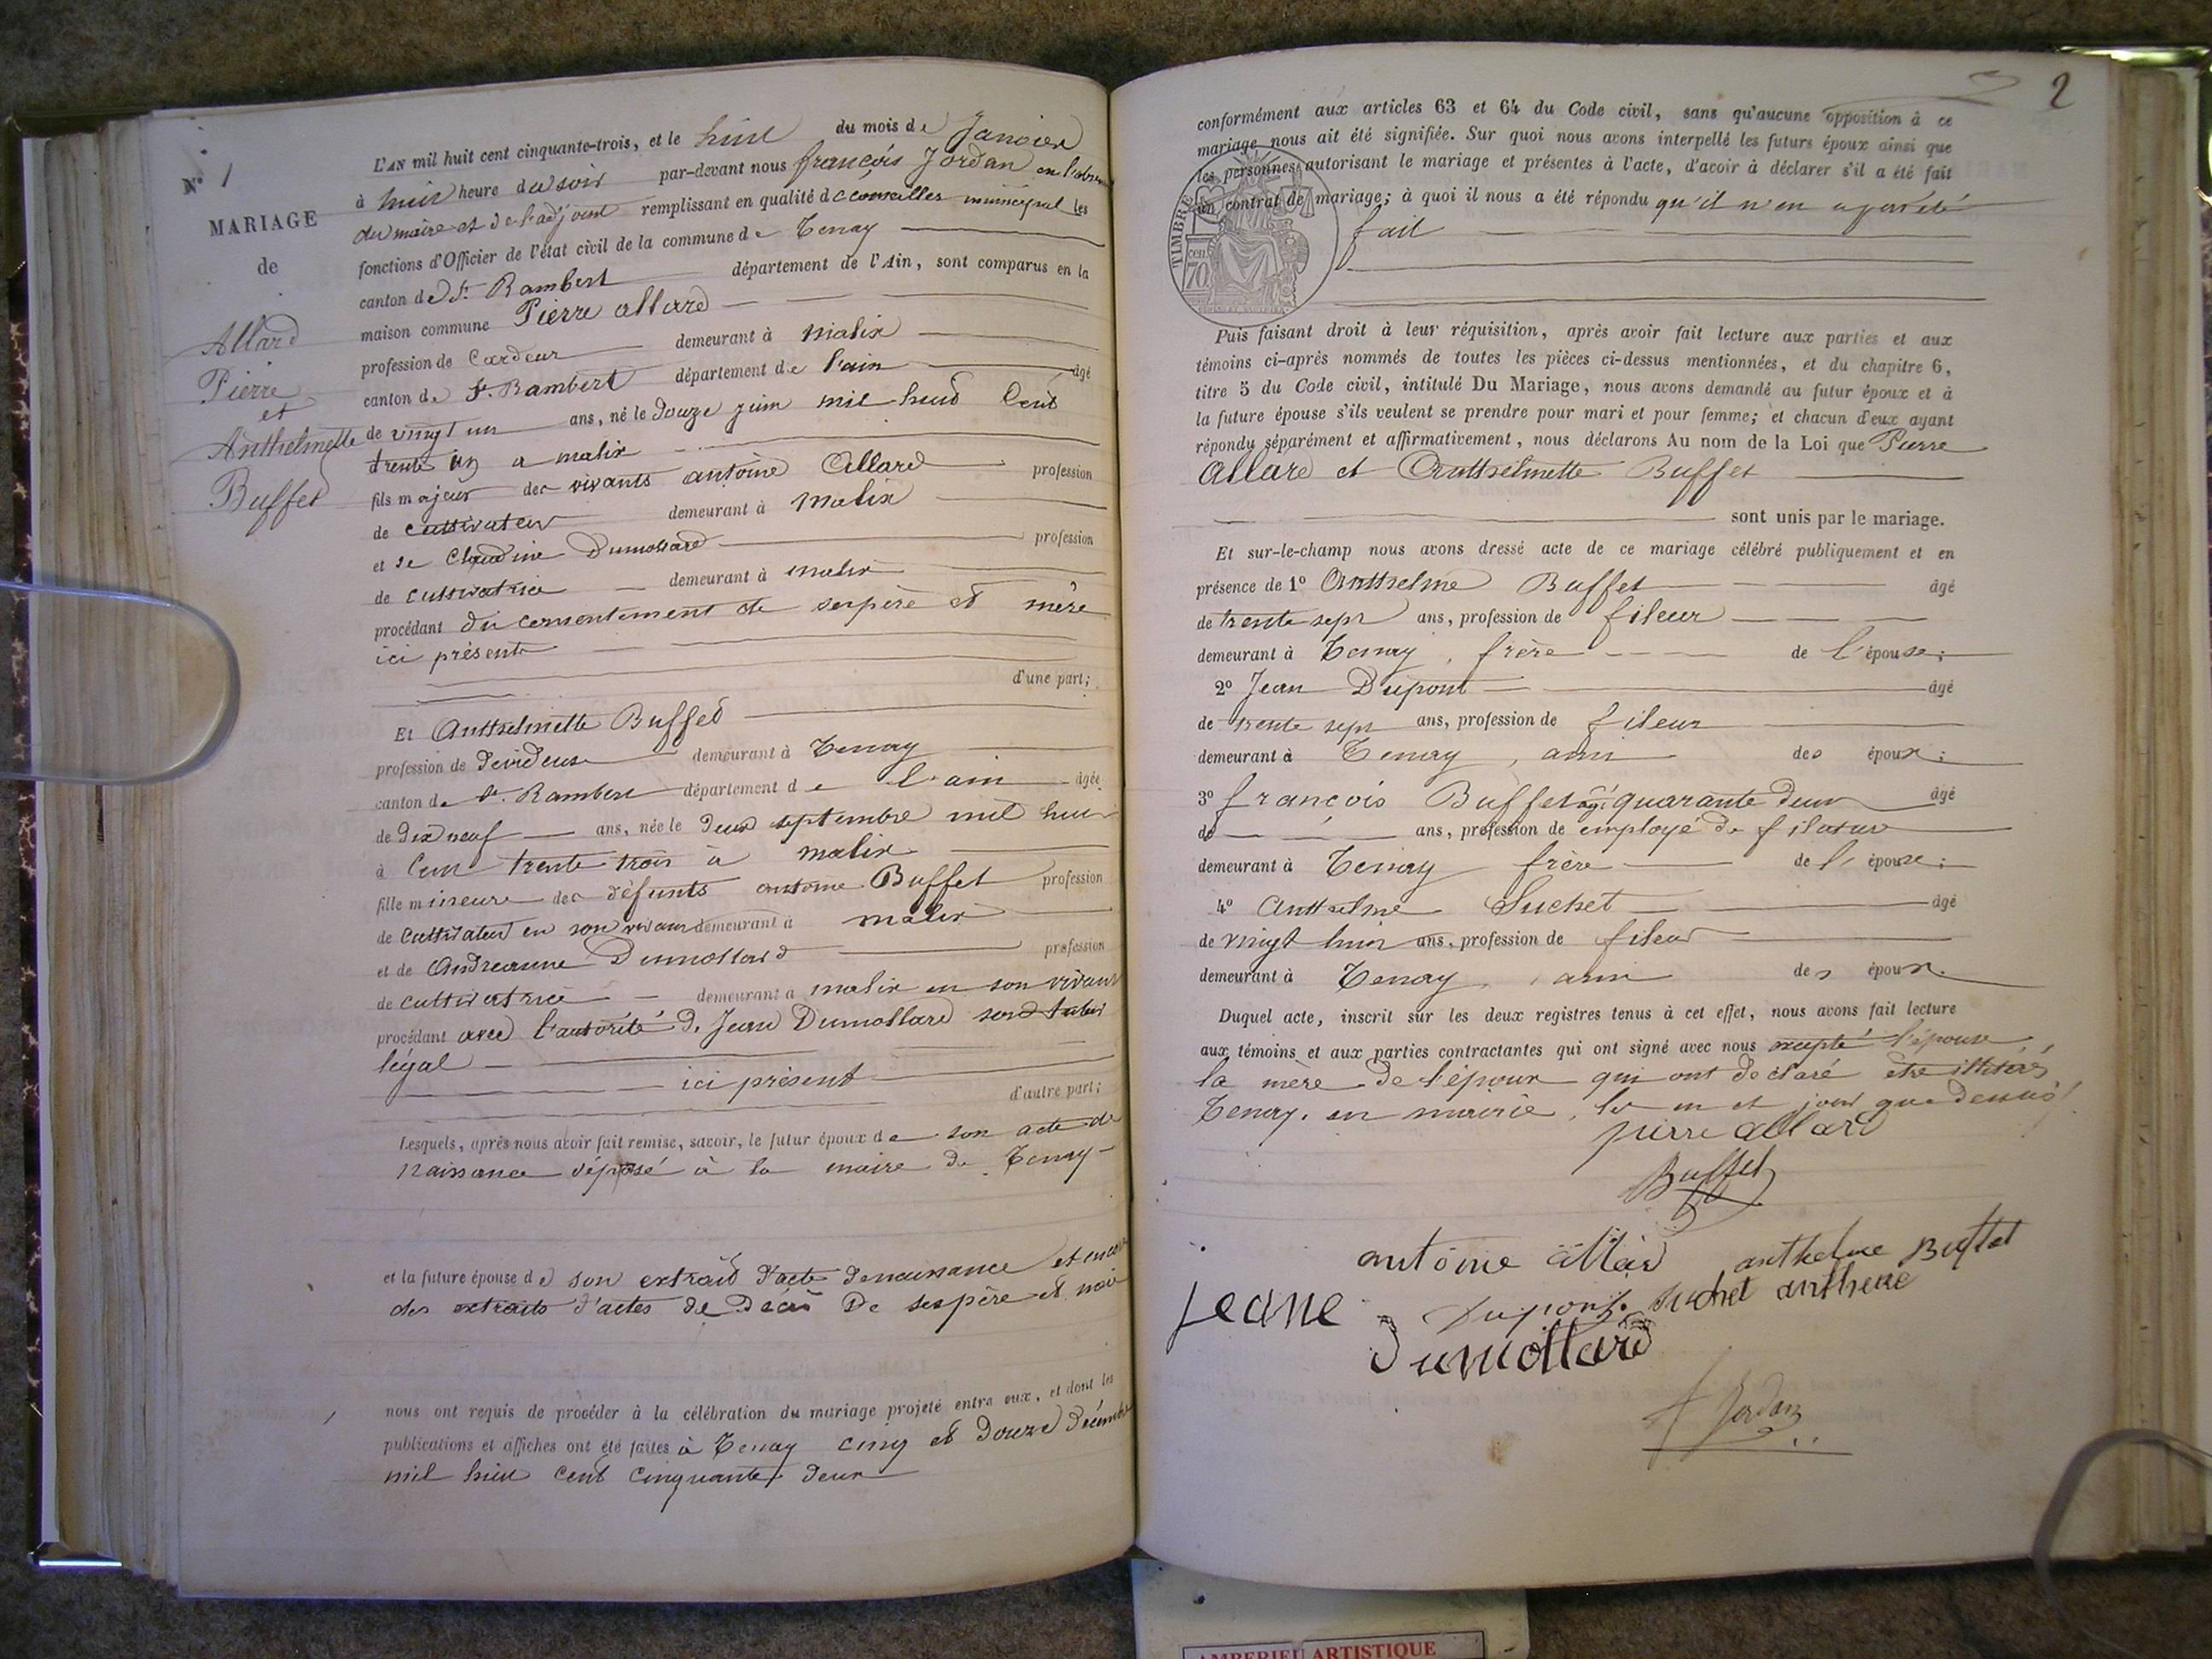 N° 1
MARIAGE
de
Allard
Pierre
et
Anthelmette
Buffet
L'AN mil huit cent cinquante-trois, et le huit du mois de Janvier
à huit heure du soir par-devant nous françois Jordan en l'absence
du maire et de l'adjoint remplissant en qualité de conseiller municipal les
fonctions d'Officier de l'état civil de la commune de Tenay
canton de St. Rambert département de l'Ain, sont comparus en la
maison commune Pierre allard
profession de Cardeur demeurant à Malix
canton de St. Rambert département de l'ain âgé
de vingt un ans, né le douze juin mil huit Cent
trente un a malix
fils majeur des vivants antoine Allard profession
de cultivateur demeurant à Malix
et de Claudine Dumollard profession
de cultivatrice demeurant à malix
procédant du consentement de ses père et mère
ici présents
d'une part;
Et Anthelmette Buffet
profession de devideuse demeurant à Tenay
canton de St. Rambert département de l'ain âgée
de dix neuf ans, née le deux septembre mil huit
à Cent trente trois à malix
fille mineure des défunts antoine Buffet profession
de cultivateur en son vivant demeurant à malix
et de Andreanne Dumollard profession
de cultivatrice demeurant a malix en son vivant
procédant avec l'autorité de Jean Dumollard son tuteur
légal
ici présent
d'autre part;
Lesquels, après nous avoir fait remise, savoir, le futur époux de son acte de
naissance déposé à la maire de Tenay
et la future épouse de son extrait d'acte de naissance et encore
des extraits d'actes de décès de ses père et mère
nous ont requis de procéder à la célébration du mariage projeté entre eux, et dont les
publications et affiches ont été faites à Tenay cinq et douze décembre
mil huit cent cinquante deux
2
conformément aux articles 63 et 64 du Code civil, sans qu'aucune opposition à ce
mariage nous ait été signifiée. Sur quoi nous avons interpellé les futurs époux ainsi que
les personnes autorisant le mariage et présentes à l'acte, d'avoir à déclarer s'il a été fait
un contrat de mariage; à quoi il nous a été répondu qu'il n'en a pas été
fait
TIMBRE
cen.
70
Puis faisant droit à leur réquisition, après avoir fait lecture aux parties et aux
témoins ci-après nommés de toutes les pièces ci-dessus mentionnées, et du chapitre 6,
titre 5 du Code civil, intitulé Du Mariage, nous avons demandé au futur époux et à
la future épouse s'ils veulent se prendre pour mari et pour femme; et chacun d'eux ayant
répondu séparément et affirmativement, nous déclarons Au nom de la Loi que Pierre
Allard et Anthelmette Buffet
sont unis par le mariage.
Et sur-le-champ nous avons dressé acte de ce mariage célébré publiquement et en
présence de 1° Anthelme Buffet âgé
de trente sept ans, profession de fileur
demeurant à Tenay, frère de l'épouse;
2° Jean Dupont âgé
de trente sept ans, profession de fileur
demeurant à Tenay, ami des époux;
3° françois Buffet âgé quarante deux âgé
de ans, profession de employé de filature
demeurant à Tenay frère de l'épouse;
4° Anthelme Suchet âgé
de vingt huit ans, profession de fileur
demeurant à Tenay, ami des époux.
Duquel acte, inscrit sur les deux registres tenus à cet effet, nous avons fait lecture
aux témoins et aux parties contractantes qui ont signé avec nous excepté l'épouse
la mère de l'époux qui ont déclaré être illitérés
Tenay, en mairie, les an et jour que dessus
pierre allard
Buffet
antoine allar anthelme Buffet
Jeane Dupont Suchet anthelme
Dumollard
F Jordan
AMBERIEU ARTISTIQUE